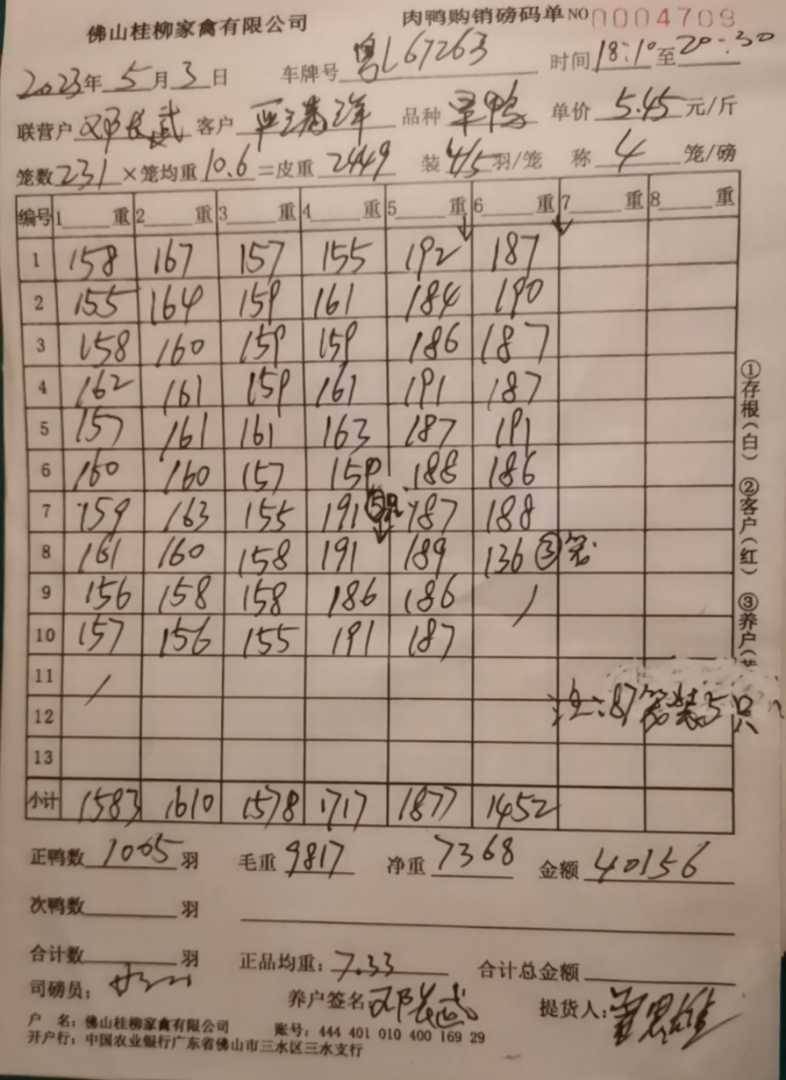 佛山桂柳家禽有限公司 肉鸭购销磅码单 NO 0004709
2023年5月3日 车牌号 粤L67263 时间 18:10至20:30
联营户 邓长武 客户 品种 旱鸭 单价 5.45 元/斤
笼数 231 ×笼均重 10.6 =皮重 2449 装 4/5 羽/笼 称 4 笼/磅
编号 1 重 2 重 3 重 4 重 5 重 6 重 7 重 8 重
1 158 167 157 155 192 187
2 155 164 159 161 184 190
3 158 160 159 159 186 187
4 162 161 159 161 191 187
5 157 161 161 163 187 191
6 160 160 157 159 188 186
7 159 163 155 191 5只 187 188
8 161 160 158 191 189 136 ③笼
9 156 158 158 186 186 /
10 157 156 155 191 187
11 /
12
13
注:87笼装5只
小计 1583 1610 1578 1717 1877 1452
①存根(白) ②客户(红) ③养户(
正鸭数 1005 羽 毛重 9817 净重 7368 金额 40156
次鸭数 羽
合计数 羽 正品均重: 7.33 合计总金额
司磅员: 养户签名 邓长武 提货人:
户 名: 佛山桂柳家禽有限公司 账号: 444 401 010 400 169 29
开户行: 中国农业银行广东省佛山市三水区三水支行